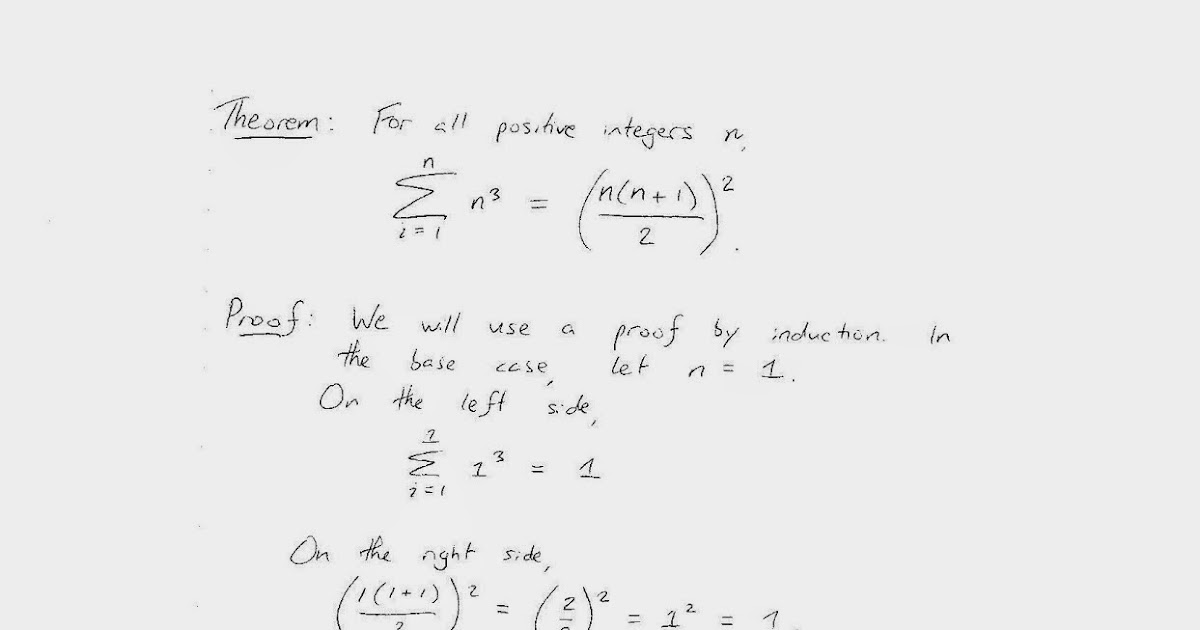 Theorem: For all positive integers n,
n
∑ n³ = (n(n+1)/2)².
i=1
Proof: We will use a proof by induction. In
the base case, let n = 1.
On the left side,
1
∑ 1³ = 1
i=1
On the right side,
(1(1+1)/2)² = (2/2)² = 1² = 1.